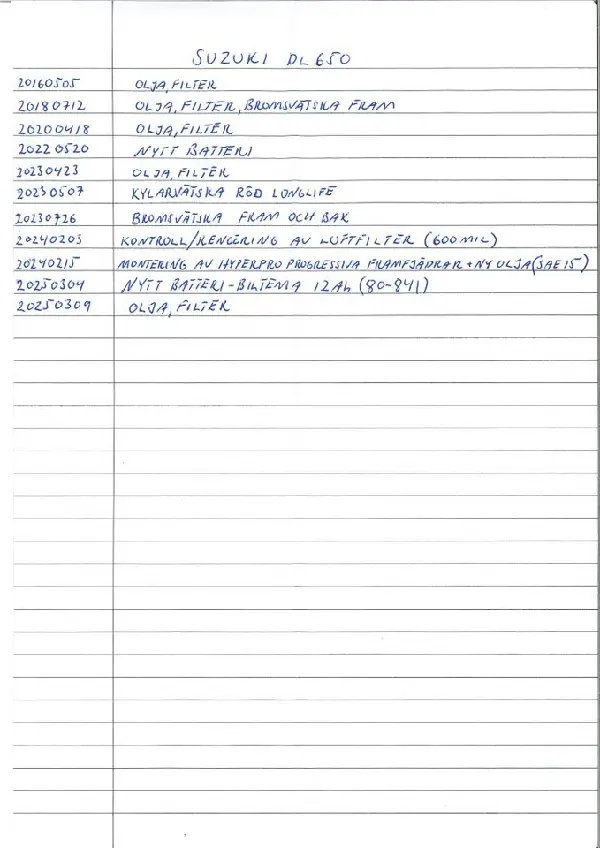 SUZUKI DL650
20160505 OLJA, FILTER
20180712 OLJA, FILTER, BROMSVÄTSKA FRAM
20200418 OLJA, FILTER
20220520 NYTT BATTERI
20230423 OLJA, FILTER
20230507 KYLARVÄTSKA RÖD LONGLIFE
20230726 BROMSVÄTSKA FRAM OCH BAK
20240203 KONTROLL/RENGÖRING AV LUFTFILTER (600MIL)
20240215 MONTERING AV HYPERPRO PROGRESSIVA FRAMFJÄDRAR + NY OLJA (SAE15)
20250304 NYTT BATTERI - BILTEMA 12Ah (80-841)
20250309 OLJA, FILTER